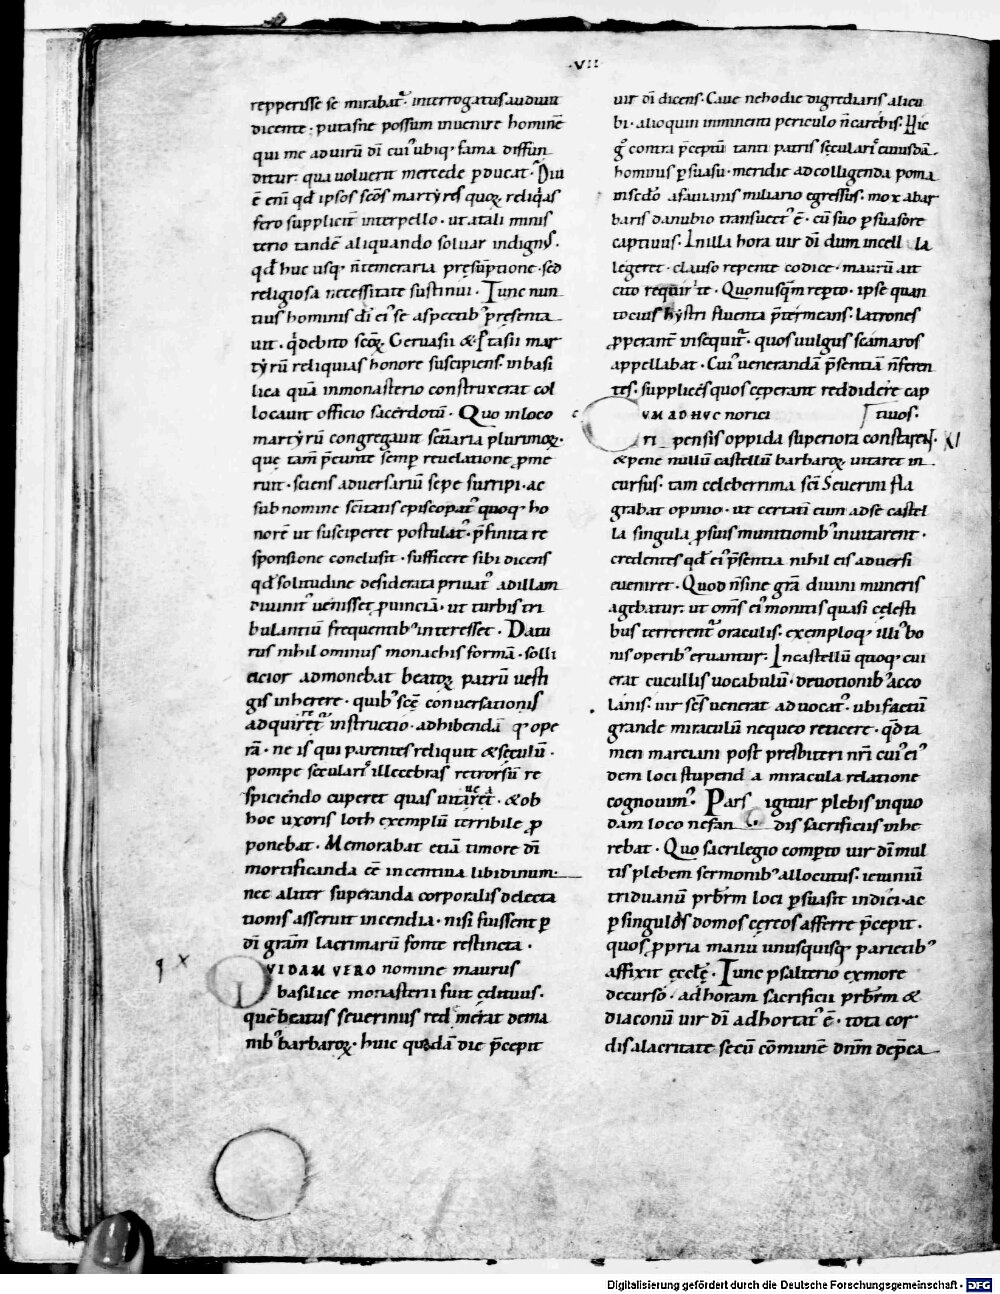 ·VII·
repperisse se mirabat᷑· interrogatus audiuit
dicente: putasne possum inuenire hominē
qui me ad uirū dī cuiꝰ ubiq; fama diffun
ditur· qua uoluerit mercede pducat· Diu
ē eni qđ ipsos scōs martyres quoꝝ reliq̄as
fero suppliciter interpello· ut a tali minis
terio tandē aliquando soluar indignꝰ·
qđ huc usq; ñ temeraria presūptione· sed
religiosa necessitate sustinui· Tunc nun
tius hominis dī eiꝰ se aspectibꝰ presenta
uit· q̄ debito scōꝝ Geruasii & ꝓtasii mar
tyrū reliquias honore suscipiens· in basi
lica quā in monasterio construxerat col
locauit officio sacerdotū· Quo in loco
martyrū congregauit scūaria plurimoꝝ·
que tam̄ p̄eunte semp reuelatione ꝓme
ruit· sciens aduersariū sepe surripi· ac
sub nomine scitatis episcopatꝰ quoq; ho
norē ut susciperet postulatꝰ· p̄finita re
sponsione conclusit· sufficere sibi dicens
qđ solitudine desiderata priuatꝰ ad illam
diuinitꝰ uenisset ꝓuinciā· ut turbis tri
bulantiū frequentibꝰ interesset· Datu
rus nihil ominus monachis formā· solli
citior admonebat beatoꝝ patrū uesti
giis inherere· quibꝰ scē conuersationis
adquireret᷑ instructio· adhibendā q; ope
rā· ne is qui parentes reliquit & seculū·
pompe secularis illecebras retrorsū re
spiciendo cuperet quas uitaret· & ob
hoc uxoris loth exemplū terribile ꝓ
ponebat· Memorabat etiā timore dī
mortificanda eē incentiua libidinum·
nec aliter superanda corporalis delecta
tionis asseruit incendia· nisi fuissent p
dī grām lacrimarū fonte restincta·
QVIDAM VERO nomine maurus
basilice monasterii fuit edituus·
quē beatus seuerinus redimerat de ma
nibꝰ barbaroꝝ· huic quadā die p̄cepit
uir dī dicens· Caue ne hodie digrediaris alicu
bi· alioquin imminenti periculo ñ carebis· Hic
ḡ contra p̄ceptū tanti patris secularis cuiusdā
hominis psuasu· meridie ad colligenda poma
in secdō a fauianis miliario egressus· mox a bar
baris danubio transuectꝰ ē· cū suo psuasore
captiuus· In illa hora uir dī dum in cellula
legeret· clauso repente codice· maurū ait
cito requirite· Quo nusqm̄ repto· ipse quan
tocius hystri fluenta p̄termeans· latrones
ꝓperant insequit᷑· quos uulgus scamaros
appellabat· Cuiꝰ uenerandā p̄sentiā ñ feren
tes· supplices quos ceperant reddidere cap
CVM ADHVC norici tiuos·
ripensis oppida superiora constarent· XI
& pene nullū castellū barbaroꝝ uitaret in
cursus· tam celeberrima sci Seuerini fla
grabat opinio· ut certati eum ad se castel
la singula p suis munitionibꝰ inuitarent·
credentes qđ eiꝰ p̄sentia nihil eis aduersi
eueniret· Quod ñ sine grā diuini muneris
agebatur· ut oms eiꝰ monitis quasi celesti
bus terrerent᷑ oraculis· exemploq; illiꝰ bo
nis operibꝰ eruantur: In castellū quoq; cui
erat cucullis uocabulū· deuotionibꝰ acco
lanis· uir scs uenerat aduocatꝰ· ubi factū
grande miraculū nequeo reticere· qđ ta
men marciani post presbiteri nri ciuiꝰ eiꝰ
dem loci stupenda miracula relatione
cognouimꝰ· Pars igitur plebis in quo
dam loco nefandis sacrificiis inhe
rebat· Quo sacrilegio compto uir dī mul
tis plebem sermonibꝰ allocutus· ieiuniū
triduanū prbrm loci psuasit indici· ac
p singulos domos cereos afferre p̄cepit·
quos ꝓpria manu unusquisq; parietibꝰ
affixit eccle· Tunc psalterio ex more
decurso· ad horam sacrificii prbrm &
diaconū uir dī adhortatꝰ ē· tota cor
dis alacritate secū cōmunē dnm dep̄ca
Digitalisierung gefördert durch die Deutsche Forschungsgemeinschaft - DFG